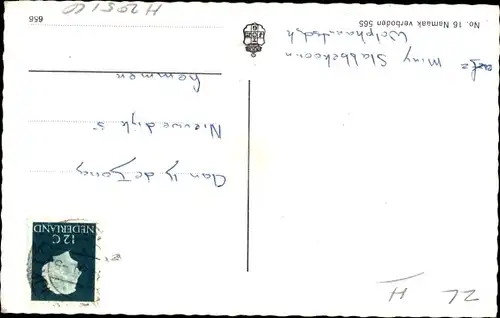 No. 16 Namaak verboden 565
afz= Miny Slabbekoorn
Wolphaartsdijk
658
H20510
NEDERLAND
12C
Aan Y de Jong
Nieuwedijk 5
Kemmen
ZL
H